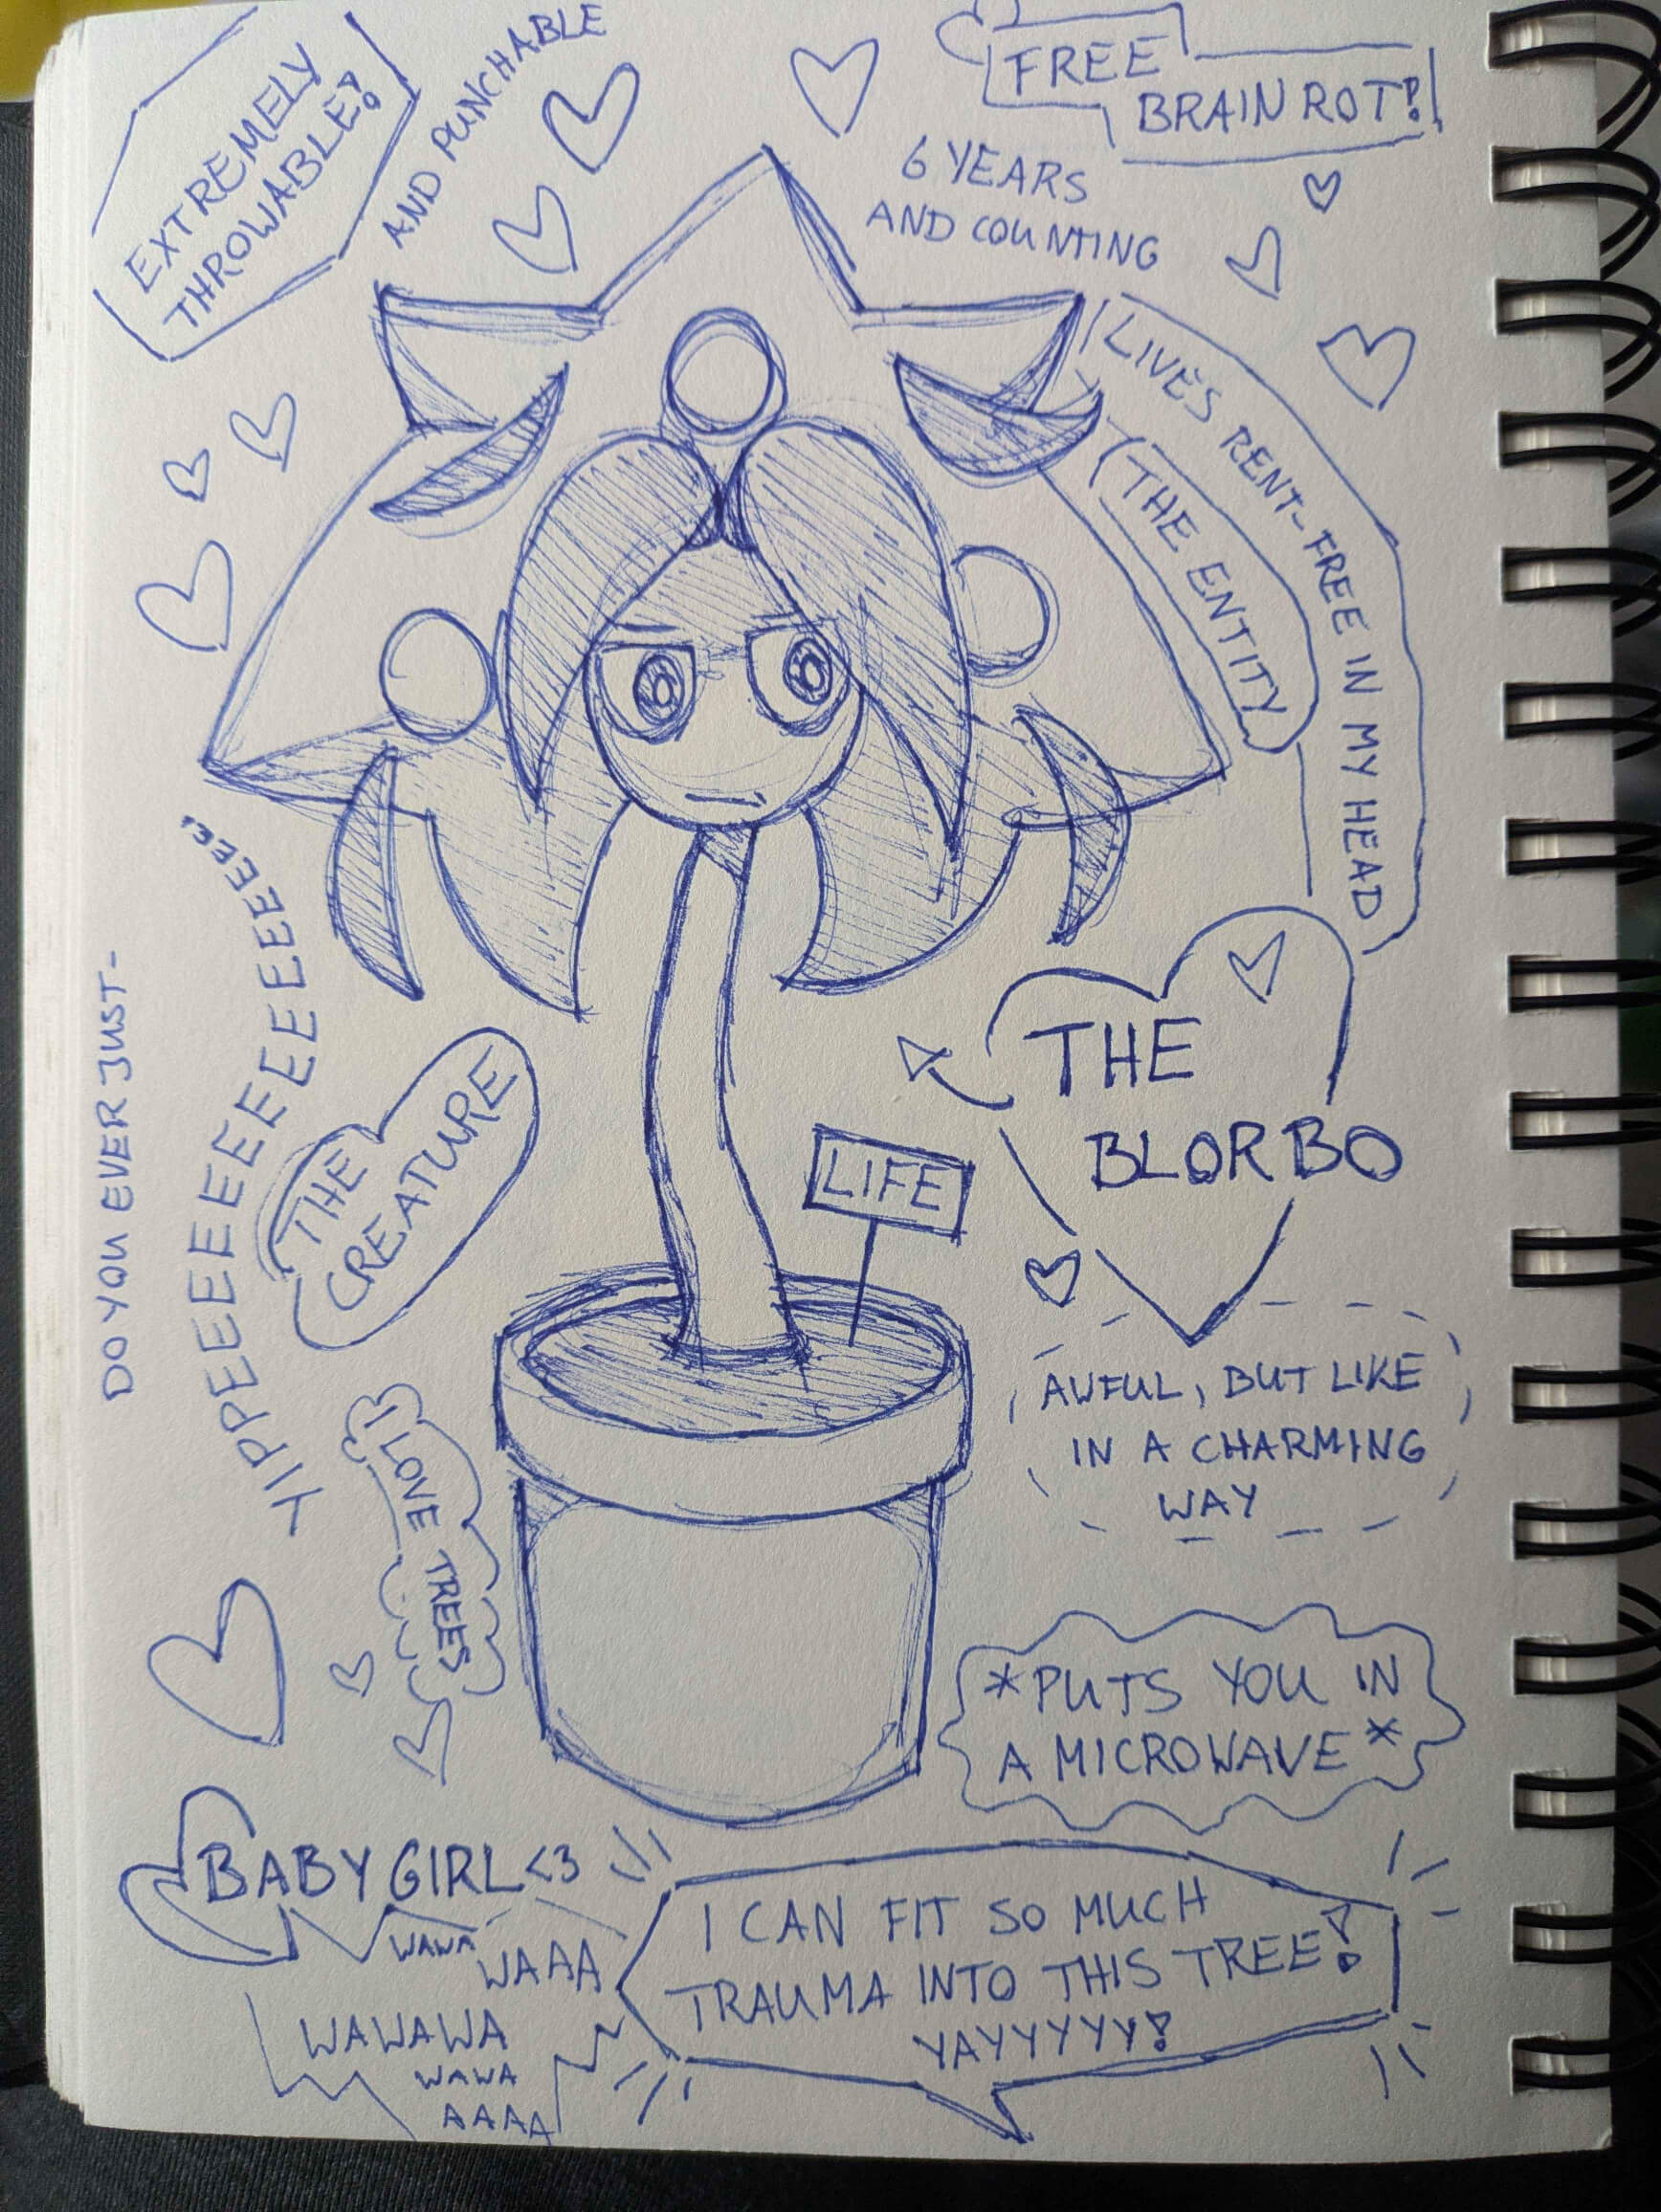 EXTREMELY
THROWABLE!
AND PUNCHABLE
FREE
BRAIN ROT!
6 YEARS
AND COUNTING
LIVES RENT-FREE IN MY HEAD
THE ENTITY
DO YOU EVER JUST-
YIPPEEEEEEEEEEEEEEE
THE
CREATURE
THE
BLORBO
LIFE
AWFUL, BUT LIKE
IN A CHARMING
WAY
I LOVE TREES
*PUTS YOU IN
A MICROWAVE*
BABYGIRL<3
WAWA
WAAA
WAWAWA
WAWA
AAAA
I CAN FIT SO MUCH
TRAUMA INTO THIS TREE!
YAYYYYYY!